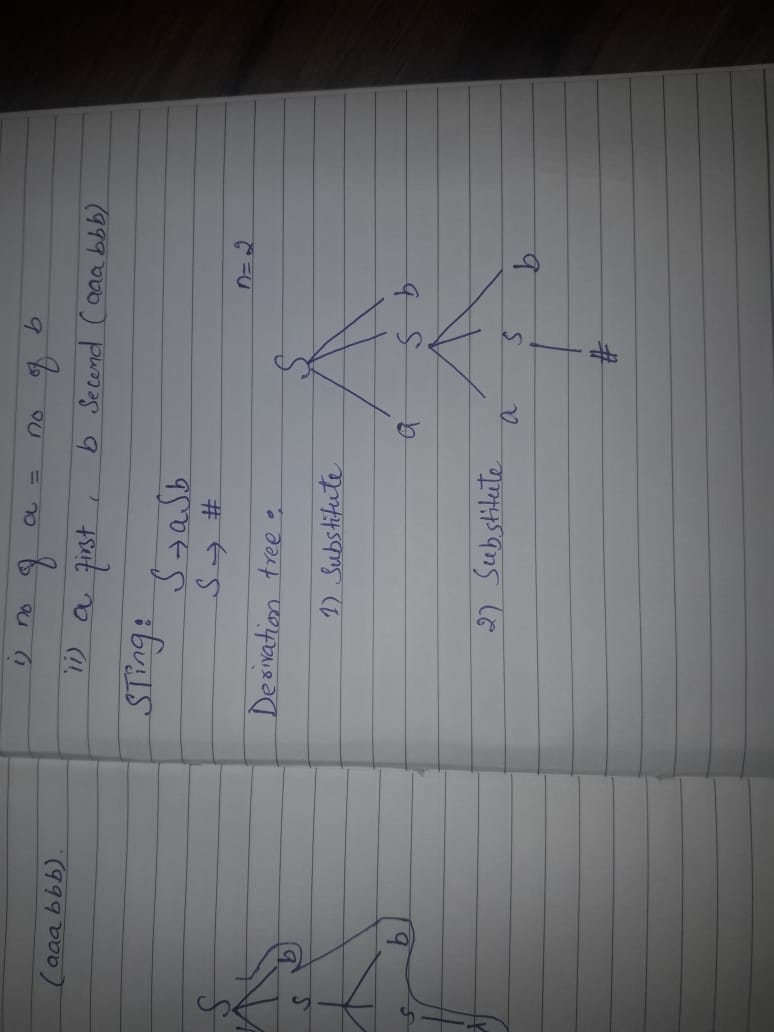 i) no of a = no of b
ii) a first, b second (aaabbb)
STing:
S → aSb
S → #
n=2
Derivation tree:
1) Substitute
S
a S b
2) Substitute
a S b
#
(aaabbb).
S
S b
S b